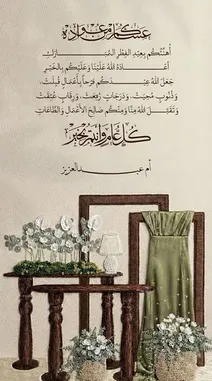 عساكم من عواده
أهنئكم بعيد الفطر المبارك
أعاده الله علينا وعليكم بالخير
جعل الله عيدكم فرحاً بأعمال قبلت،
وذنوب محيت، ودرجات رفعت، ورقاب عتقت
وتقبل الله منا ومنكم صالح الأعمال والطاعات
كل عام وأنتم بخير
أم عبدالعزيز